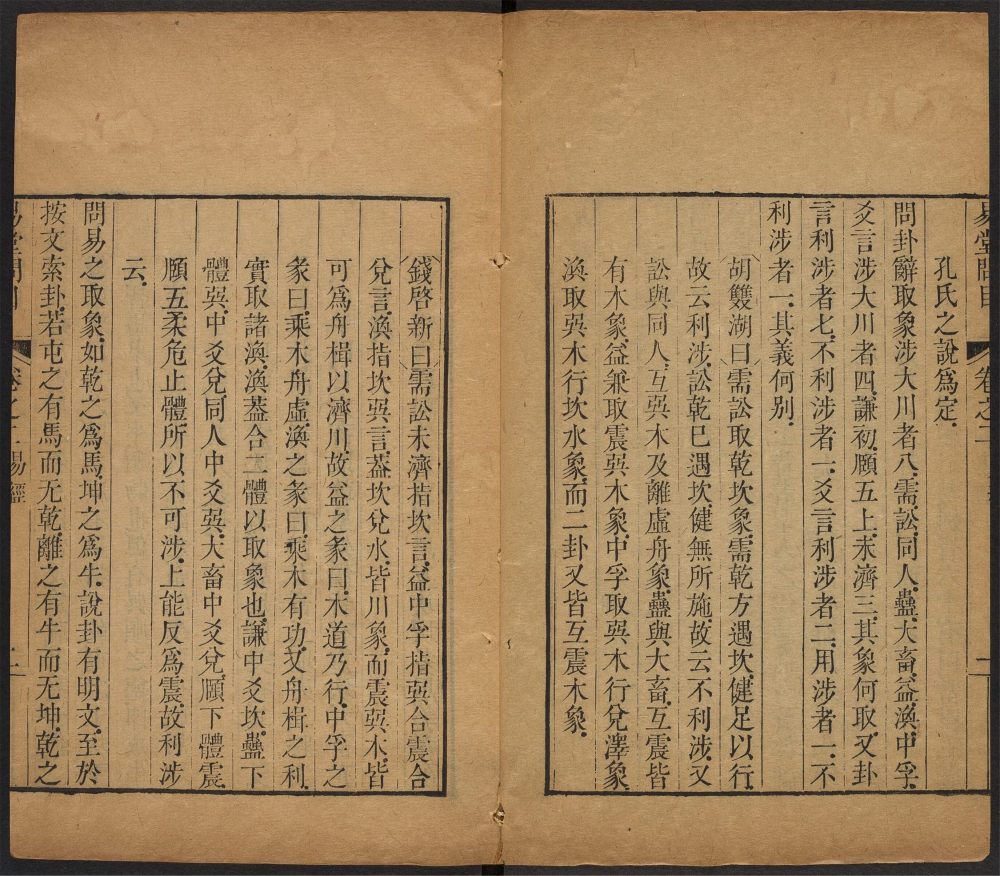 易堂問目 卷之二
孔氏之說爲定
問卦辭取象涉大川者八需訟同人蠱大畜益渙中孚
爻言涉大川者四謙初頤五上未濟三其象何取又卦
言利涉者七不利涉者一爻言利涉者二用涉者一不
利涉者一其義何別
胡雙湖曰需訟取乾坎象需乾方遇坎健足以行
故云利涉訟乾已遇坎健無所施故云不利涉又
訟與同人互巽木及離虛舟象蠱與大畜互震皆
有木象益兼取震巽木象中孚取巽木行兌澤象
渙取巽木行坎水象而二卦又皆互震木象
錢啓新曰需訟未濟指坎言益中孚指巽合震合
兌言渙指坎巽言葢坎兌水皆川象而震巽木皆
可爲舟楫以濟川故益之彖曰木道乃行中孚之
彖曰乘木舟虛渙之彖曰乘木有功又舟楫之利
實取諸渙渙葢合二體以取象也謙中爻坎蠱下
體巽中爻兌同人中爻巽大畜中爻兌頤下體震
頤五柔危止體所以不可涉上能反爲震故利涉
云
問易之取象如乾之爲馬坤之爲牛說卦有明文至於
按文索卦若屯之有馬而无乾離之有牛而无坤乾之
易堂問目 卷之二 易經 二